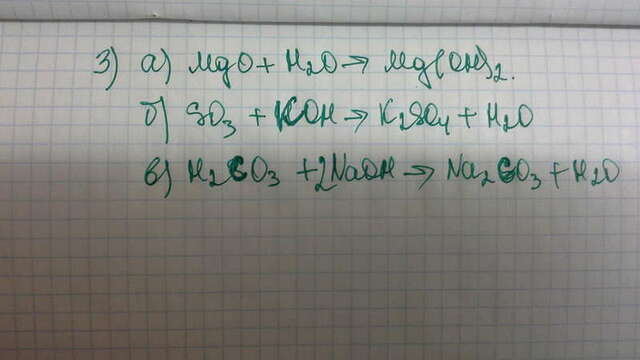 3) а) MgO + H2O → Mg(OH)2.
б) SO3 + KOH → K2SO4 + H2O
в) H2CO3 + 2NaOH → Na2CO3 + H2O